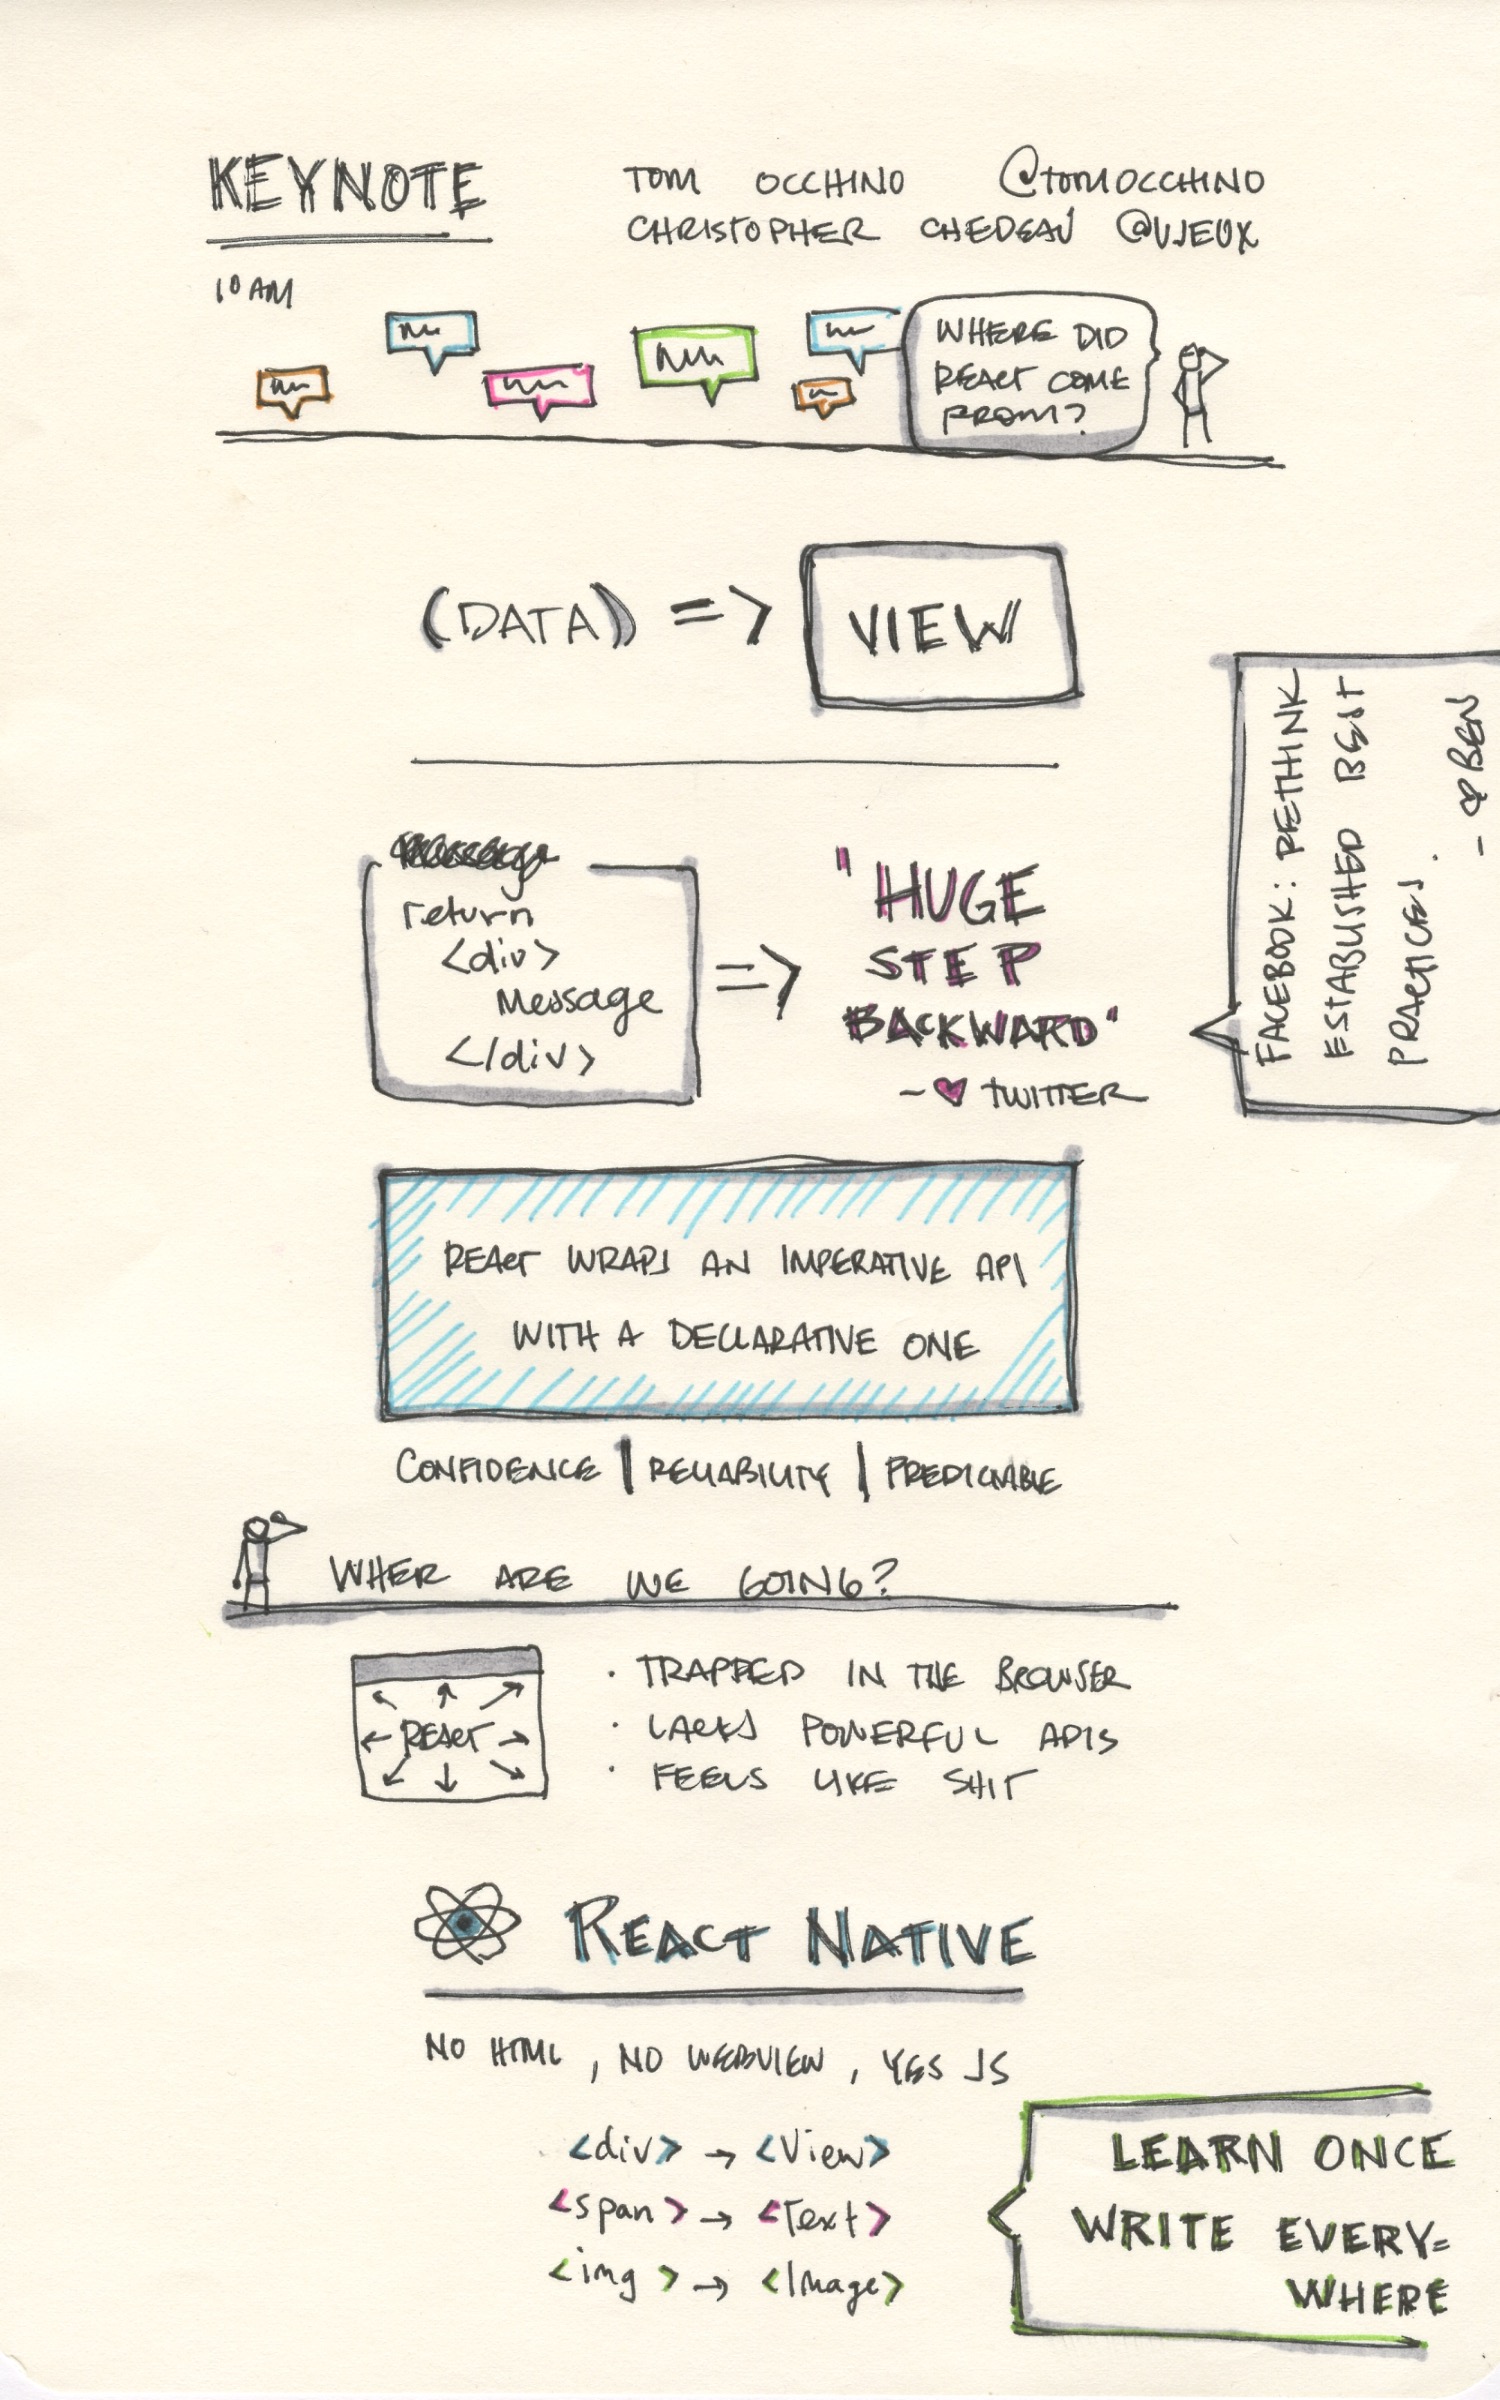 KEYNOTE
TOM OCCHINO @TOMOCCHINO
CHRISTOPHER CHEDEAU @VJEUX
10 AM
WHERE DID
REACT COME
FROM?
(DATA) => VIEW
FACEBOOK: RETHINK
ESTABLISHED BEST
PRACTICES.
- BEN
return
<div>
Message
</div>
=>
"HUGE
STEP
BACKWARD"
- ♥ TWITTER
REACT WRAPS AN IMPERATIVE API
WITH A DECLARATIVE ONE
CONFIDENCE | RELIABILITY | PREDICTABLE
WHER ARE WE GOING?
REACT
· TRAPPED IN THE BROWSER
· LACKS POWERFUL APIS
· FEELS LIKE SHIT
REACT NATIVE
NO HTML, NO WEBVIEW, YES JS
<div> → <View>
<span> → <Text>
<img> → <Image>
LEARN ONCE
WRITE EVERY=
WHERE